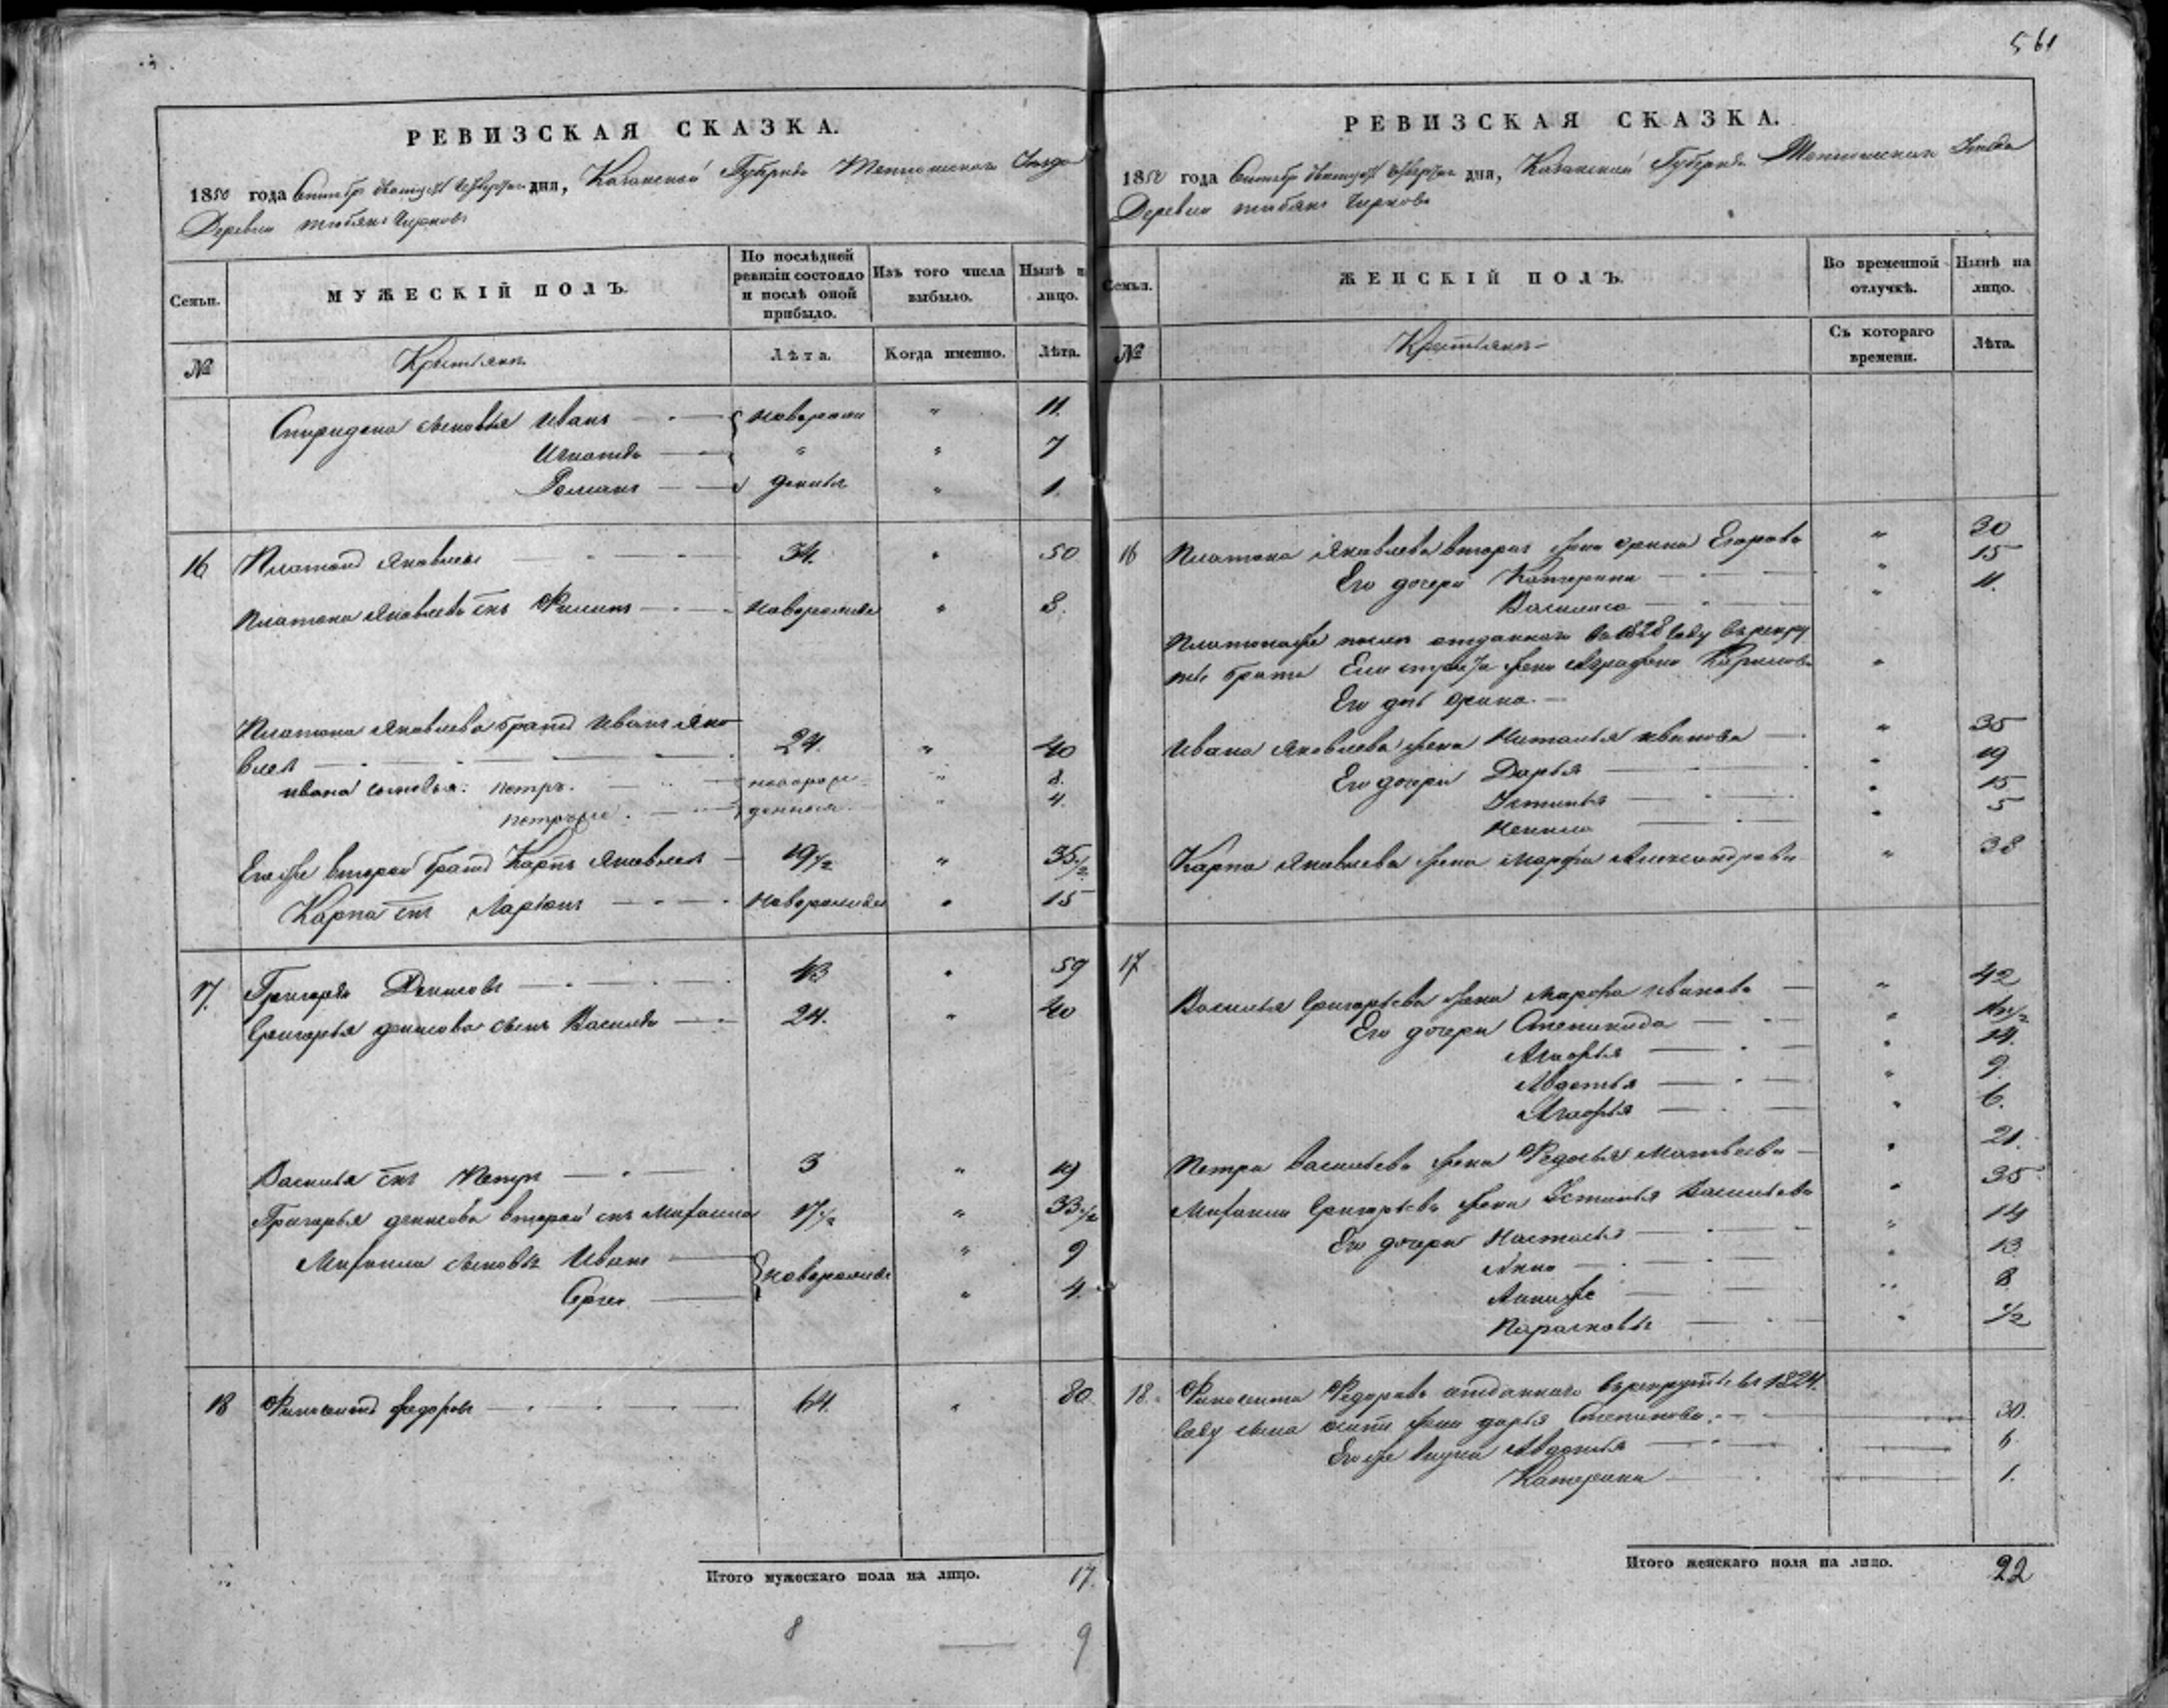 561
РЕВИЗСКАЯ СКАЗКА.
1850 года Сентября двадцать четвертаго дня, Казанской Губернии Тетюшскаго Уезда
Деревни
Семьи.
МУЖЕСКІЙ ПОЛЪ.
По послѣдней ревизіи состояло и послѣ оной прибыло.
Изъ того числа выбыло.
Нынѣ на лицо.
№
Крестьянъ
Лѣта.
Когда именно.
Лѣта.
Спиридона сыновья Иванъ { новорож " 11.
Игнатей " " 7
Романъ денныя " 1.
16 Платонъ Яковлевъ 34. " 50
Платона Яковлева сынъ Филипъ новорожден " 8.
Платона Яковлева братъ Иванъ Яко
влевъ 24. " 40
ивана сыновья: петръ новорож " 8.
петръ же денныя " 4.
Его же второй братъ Карпъ Яковлевъ 19 1/2 " 35 1/2
Карпа сынъ Ларіонъ новорожден " 15
17. Григорей Денисовъ 43 " 59
Григорья денисова сынъ Василей 24. " 40
Василья сынъ Петръ 3 " 19
Григорья денисова второй сынъ Михаила 17 1/2 " 33 1/2
Михаила сыновья Иванъ { новорожден " 9
Сергей " 4.
18 Филиситъ федоровъ 64. " 80
Итого мужескаго пола на лицо. 17.
8 — 9
РЕВИЗСКАЯ СКАЗКА.
1850 года Сентября двадцать четвертаго дня, Казанской Губернии Тетюшскаго Уезда
Деревни
Семьи.
ЖЕНСКІЙ ПОЛЪ.
Во временной отлучкѣ.
Нынѣ на лицо.
№
Крестьянъ
Съ котораго времени.
Лѣта.
16 Платона Яковлева вторая жена Орина Егорова " 30
Его дочери Катерина " 15
Василиса " 11.
Платона же после отданнаго въ 1828 году въ рекру
ты брата жена Аграфена "
Его дочь Орина
Ивана Яковлева жена Наталья иванова " 35
Его дочери Дарья " 19
Устинья " 15
Ненила " 5
Карпа Яковлева жена Марфа Александрова " 38
17 Василья Григорьева жена Марфа иванова " 42
Его дочери Степанида "
Агафья " 14.
Авдотья " 9.
Агафья " 6.
Петра Васильева жена Федосья Матвеева " 21.
Михаила Григорьева жена Устинья Васильева " 35
Его дочери Настасья " 14
Анна " 13
Анна же " 8
Парасковья " 1/2
18. Филисита Федорова отданнаго въ рекруты въ 1824.
году сына жена дарья Степанова 30.
Его же внуки Авдотья 6
Катерина 1.
Итого женскаго пола на лицо. 22